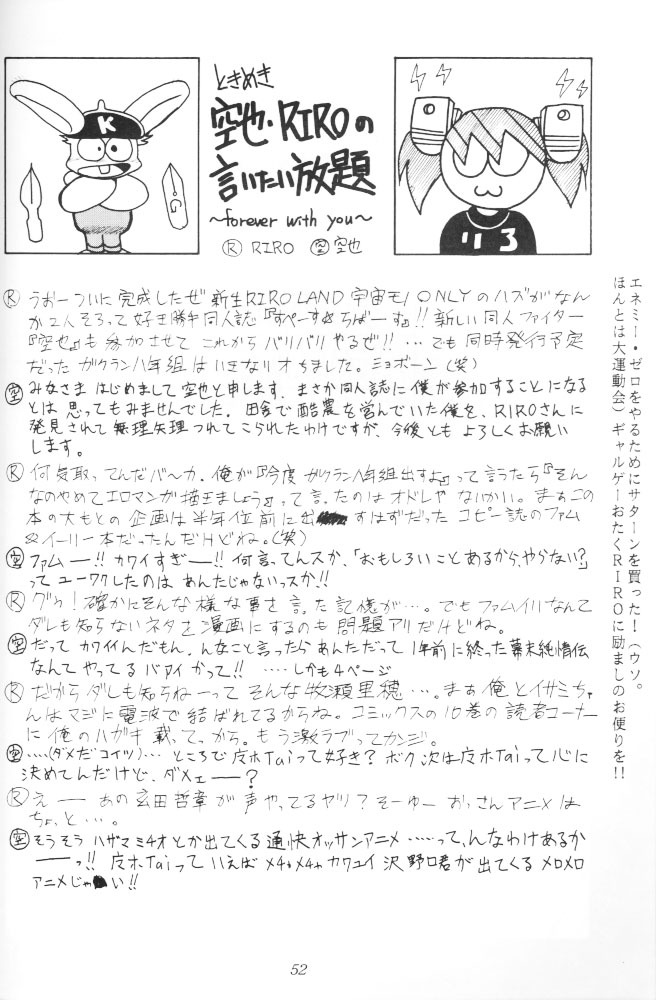 ときめき
空也・RIROの
言いたい放題
～forever with you～
Ⓡ RIRO ㊢空也
K
G
り 3
エネミー・ゼロをやるためにサターンを買った！（ウソ。
ほんとは大運動会）ギャルゲーおたくRIROに励ましのお便りを!!
Ⓡ うおーついに完成したぜ 新生RIRO LAND 宇宙モノONLYのハズがなん
か2人そろって好き勝手同人誌『すぺーす☆らばーす』!! 新しい同人ファイター
『空也』も参加させて これからバリバリやるぜ!! …でも同時発行予定
だった ガクラン八年組は いきなりオちました。ショボーン（笑）
空 みなさま はじめまして 空也と申します. まさか同人誌に僕が参加することになる
とは 思ってもみませんでした. 田舎で酪農を営んでいた僕を、RIROさんに
発見されて 無理矢理つれてこられたわけですが、今後とも よろしくお願い
します。
Ⓡ 何気取ってんだバ～カ. 俺が『今度 ガクラン八年組出すよ』って言うたら『そん
なのやめてエロマンガ描きましょう』って言ったのは オドレや ないかい。まずこの
本の大もとの 企画は半年位前に出 すはずだった コピー誌のファム
&イーリー本だったんだけどね。（笑）
空 ファムー!! カワイすぎー!! 何言ってんスか、「おもしろいことあるから、やらない?」
って ユーワクしたのは あんたじゃないっスか!!
Ⓡ グゥ! 確かにそんな様な事を言った記憶が…。でもファムイリなんて
ダレも知らないネタを漫画にするのも 問題アリだけどね。
空 だって カワイんだもん. んなこと言ったらあんただって 1年前に終った幕末純情伝
なんて やってる バアイ かって!! ……しかも4ページ
Ⓡ だからダレも知らねーって そんな牧瀬里穂…。まず俺とイサミちゃ
んはマジに電波で結ばれてるからね。コミックスの10巻の読者コーナー
に俺のハガキ載ってっから。もう激ラブってカンジ。
空 ….(ダメだコイツ)… ところで虎ホTaiって好き? ボク次は虎ホTaiって心に
決めてんだけど、ダメェー?
Ⓡ えー あの玄田哲章が声やってるヤツ? そーゆー おっさんアニメは
ちょっと…。
空 そうそう ハザマミチオとか出てくる 通快オッサンアニメ ……って、んなわけあるか
ーっ!! 虎ホTaiって いえば メチャメチャ カワユイ 沢野口君が出てくる メロメロ
アニメじゃ い!!
52